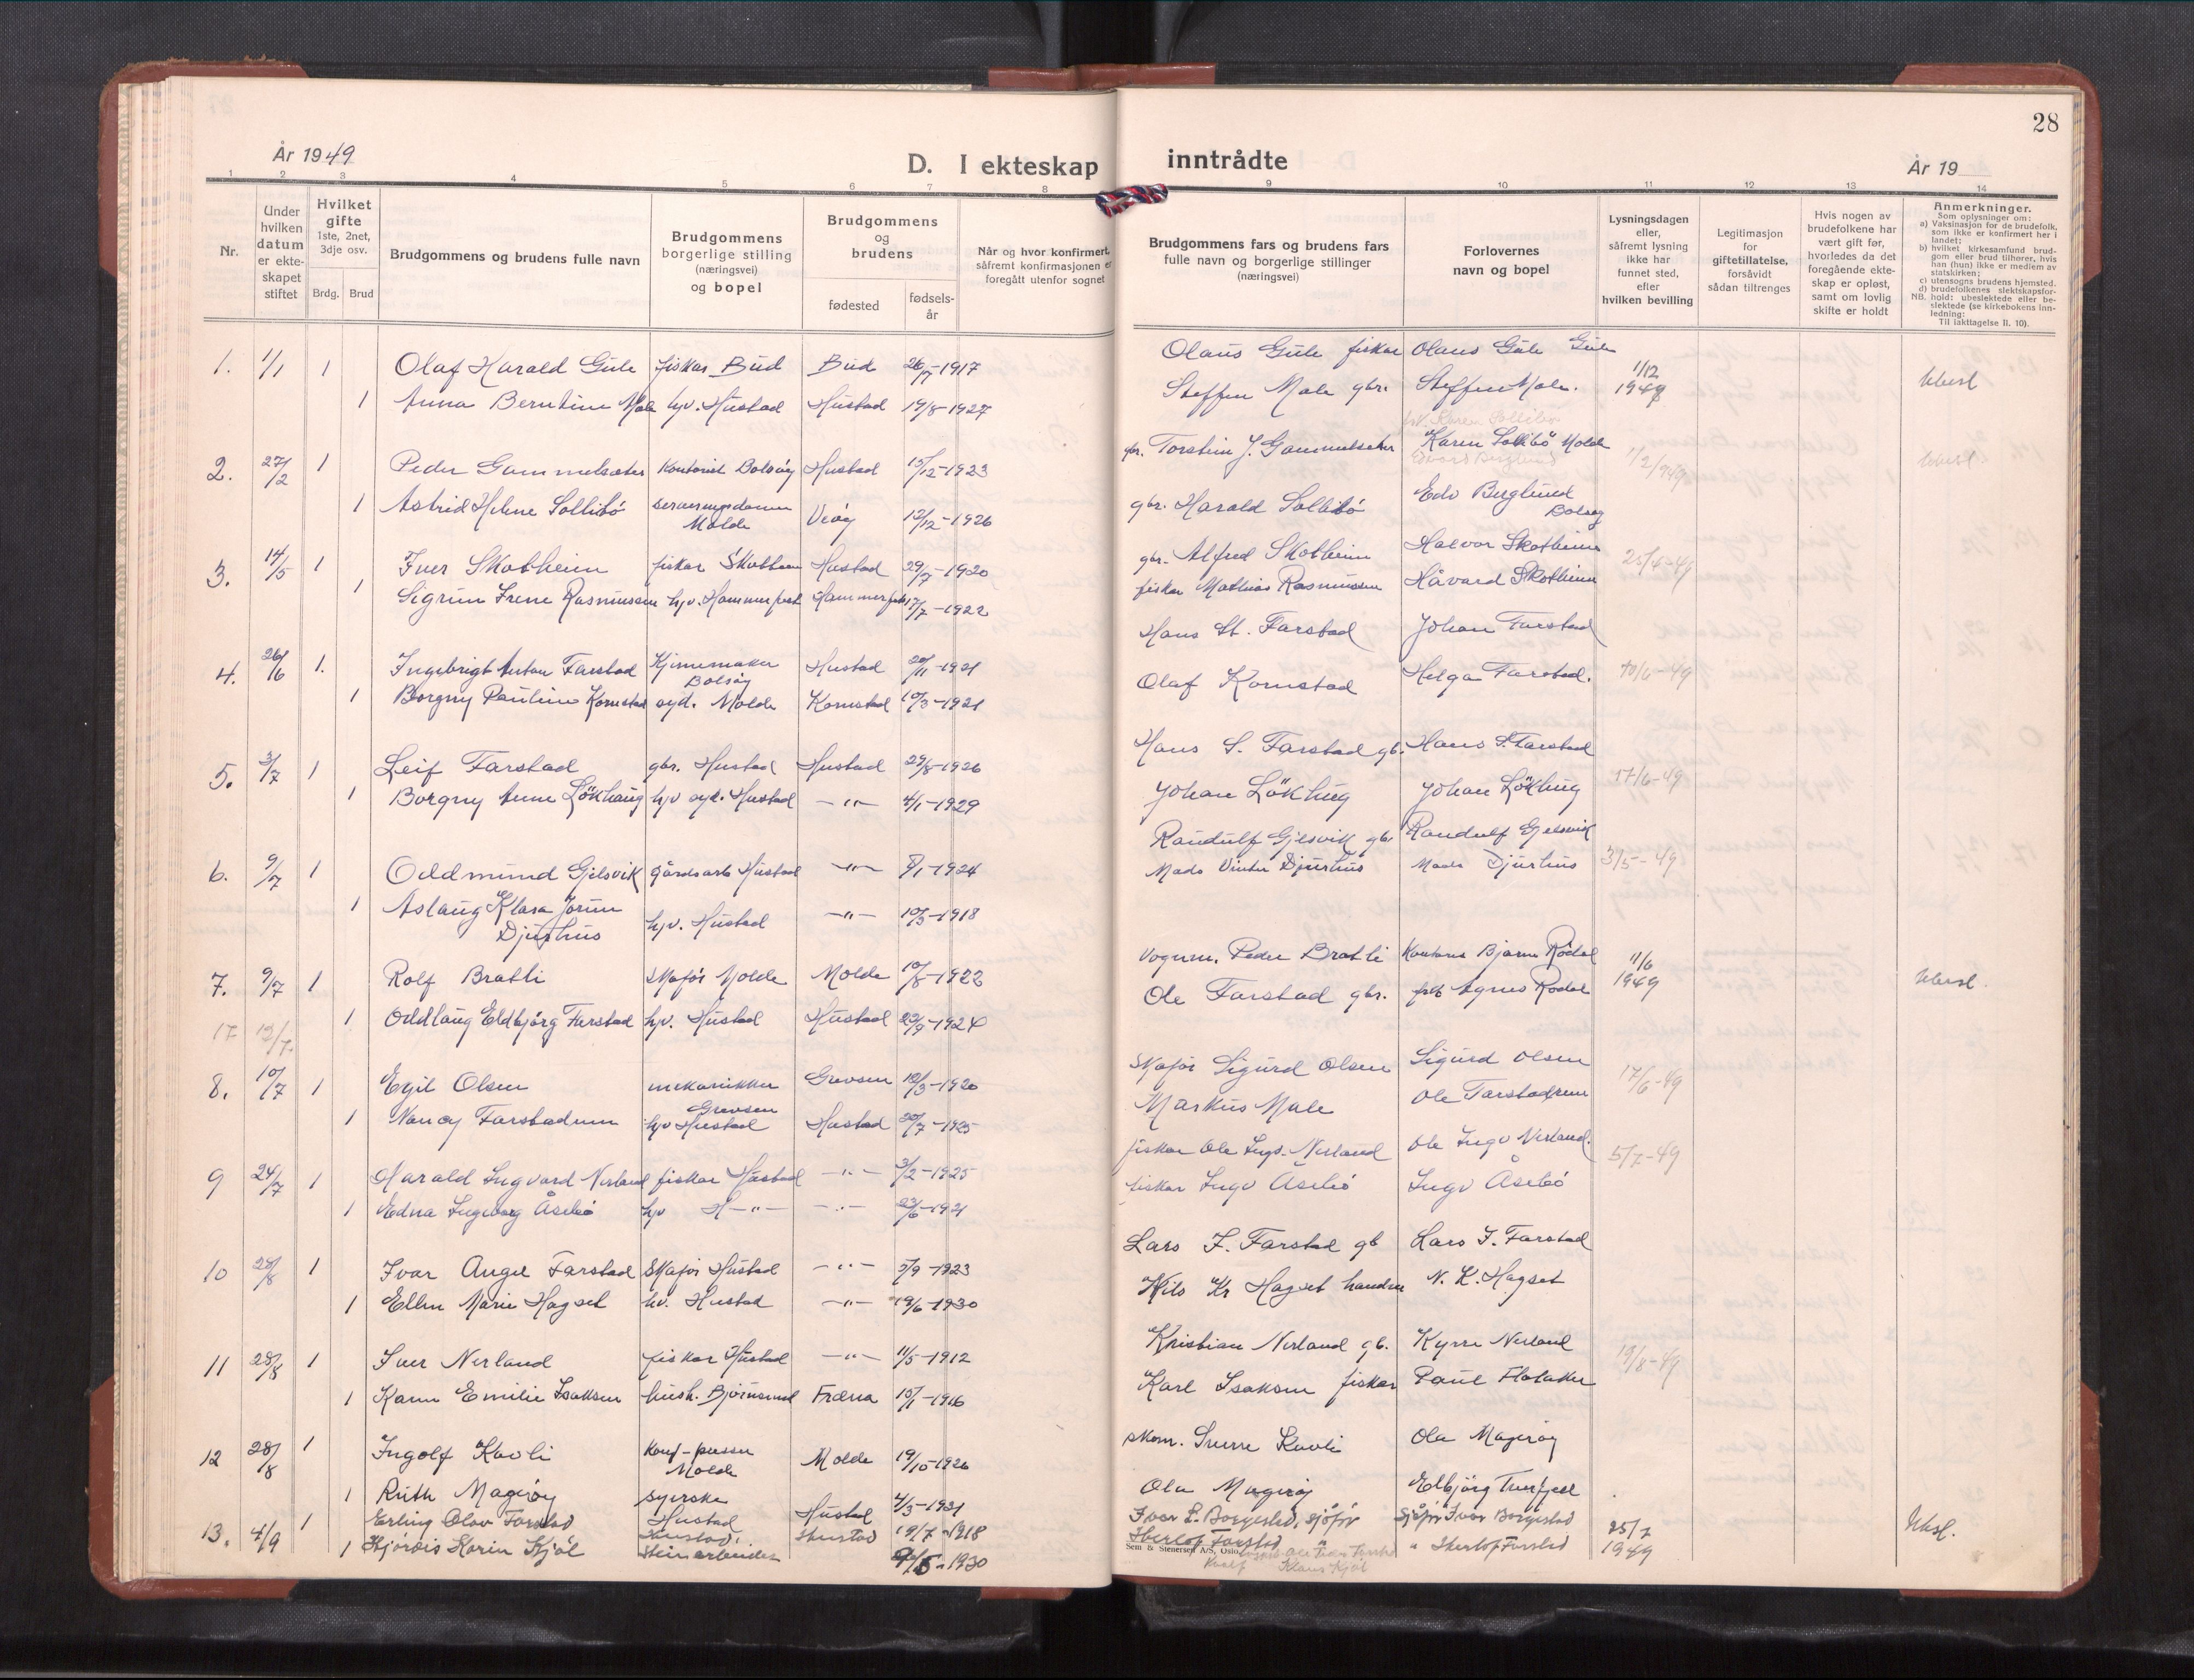 28
År 1949
D. I ekteskap inntrådte
År 19
1 2 3 4 5 6 7 8 9 10 11 12 13 14
Nr.
Under hvilken datum er ekte-skapet stiftet
Hvilket gifte
1ste, 2net, 3dje osv.
Brdg. Brud
Brudgommens og brudens fulle navn
Brudgommens borgerlige stilling (næringsvei) og bopel
Brudgommens og brudens
fødested
fødsels-år
Når og hvor konfirmert, såfremt konfirmasjonen er foregått utenfor sognet
Brudgommens fars og brudens fars fulle navn og borgerlige stillinger (næringsvei)
Forlovernes navn og bopel
Lysningsdagen eller, såfremt lysning ikke har funnet sted, efter hvilken bevilling
Legitimasjon for giftetillatelse, forsåvidt sådan tiltrenges
Hvis nogen av brudefolkene har vært gift før, hvorledes da det foregående ekte-skap er opløst, samt om lovlig skifte er holdt
Anmerkninger.
Som oplysninger om:
a) Vaksinasjon for de brudefolk, som ikke er konfirmert her i landet;
b) hvilket kirkesamfund brud-gom eller brud tilhører, hvis han (hun) ikke er medlem av statskirken;
c) utensogns brudens hjemsted.
d) brudefolkenes slektskapsfor-hold: ubeslektede eller be-slektede (se kirkebokens inn-ledning:
NB. Til iakttagelse II. 10).
1. 1/1 1 Olaf Harald Gule fiskar Bud Bud 26/7-1917 Olaus Gule fiskar Olaus Gule Gule 1/12
1 Anna Berntine Male hjv. Hustad Hustad 19/8-1927 Steffen Male gbr. Steffen Male. 1948 Ubesl
2. 27/2 1 Peder Gammelsæter Kontorist Bolsöy Hustad 15/12-1923 gbr. Torstein J. Gammelsæter Karen Sollibö Molde 1/2 1949 Ubesl.
1 Astrid Helene Sollibö serveringsdame Molde Veöy 12/12-1926 gbr. Harald Sollibö Edv Berglund Bolsöy
3. 14/5 1 Iver Skotheim fiskar Skotheim Hustad 29/7-1920 gbr. Alfred Skotheim Halvor Skotheim 25/4-49
1 Sigrun Irene Rasmussen hjv. Hammerfest Hammerfest 17/7-1922 fiskar Mathias Rasmussen Håvard Skotheim
4. 26/6 1. Ingebrigt Anton Farstad Kjinemaker Bolsöy Hustad 20/11-1921 Hans St. Farstad Johan Farstad
1 Borgny Pauline Kornstad syd. Molde Kornstad 10/3-1921 Olaf Kornstad Helga Farstad. 10/6-49
5. 3/7 1 Leif Farstad gbr. Hustad Hustad 29/8-1926 Hans S. Farstad gb. Hans S. Farstad 17/6-49
1 Borgny Anne Lökhaug hjv syd. Hustad —"— 4/1-1929 Johan Lökhug Johan Lökhug
6. 9/7 1 Oddmund Gjelsvik gårdsarb Hustad —"— 8/1-1924 Randulf Gjelsvik gbr Randulf Gjelsvik 3/5-49
1 Aslaug Klara Jorun Djurhus hjv. Hustad —"— 10/3-1918 Mads Vinter Djurhus Mads Djurhus
7. 9/7 1 Rolf Bratli Sjafór Molde Molde 10/8-1922 Vognm. Peder Bratli Kontorist Bjarne Rödal 11/6
1 Oddlaug Eldbjörg Farstad hjv. Hustad Hustad 22/9-1924 Ole Farstad gbr. frk Agnes Rödal 1949 Ubesl.
17 12/7.
8. 10/7 1 Egil Olsen mekanikker Grevsen Grevsen 12/3-1920 Sjafór Sigurd Olsen Sigurd Olsen 17/6-49
1 Nancy Farstadnum hjv Hustad Hustad 20/7-1925 Markus Male Ole Farstadnum
9 24/7 1 Harald Ingvard Nerland fiskar Hustad —"— 3/2-1925 fiskar Ole Ingv. Nerland Ole Ingv Nerland. 5/7-49
1 Edna Ingeborg Åsebö hjv H—"— —"— 23/6-1921 fiskar Ingv Åsebö Ingv Åsebö
10 28/8 1 Ivar Angel Farstad Sjafór Hustad —"— 5/9-1923 Lars I. Farstad gb Lars I. Farstad
1 Ellen Marie Hagset hv. Hustad —"— 19/6-1930 Nils Kr Hagset handm N. K. Hagset
11 28/8 1 Iver Nerland fiskar Hustad —"— 11/5-1912 Kristian Nerland gb. Kyrre Nerland 19/8-49
1 Karen Emilie Isaksen hush. Björnsund Fræna 15/1-1916 Karl Isaksen fiskar Paul Flataker
12 28/8 1 Ingolf Kavli Molde Molde 19/10-1926 Skom. Sverre Kavli Ola Mageröy
1 Ruth Mageröy syerske Hustad 4/3-1921 Ola Mageröy Elbjörg Tverfjell
13. 4/9 1 Erling Olav Farstad Hustad Hustad 19/7-1918 Ivar L. Borgestad, sjåför sjåför Ivar Borgestad 25/7
1 Hjördis Karin Kjöl Steinarbeider 9/5-1930 Herlof Farstad " Herlof Farstad 1949 Ubsl.
Sem & Stenersen A/S, Oslo
Klaus Kjöl